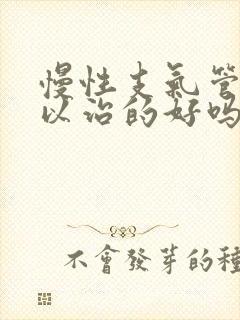 慢性支氣管
以治的好嗎
不會發芽的種